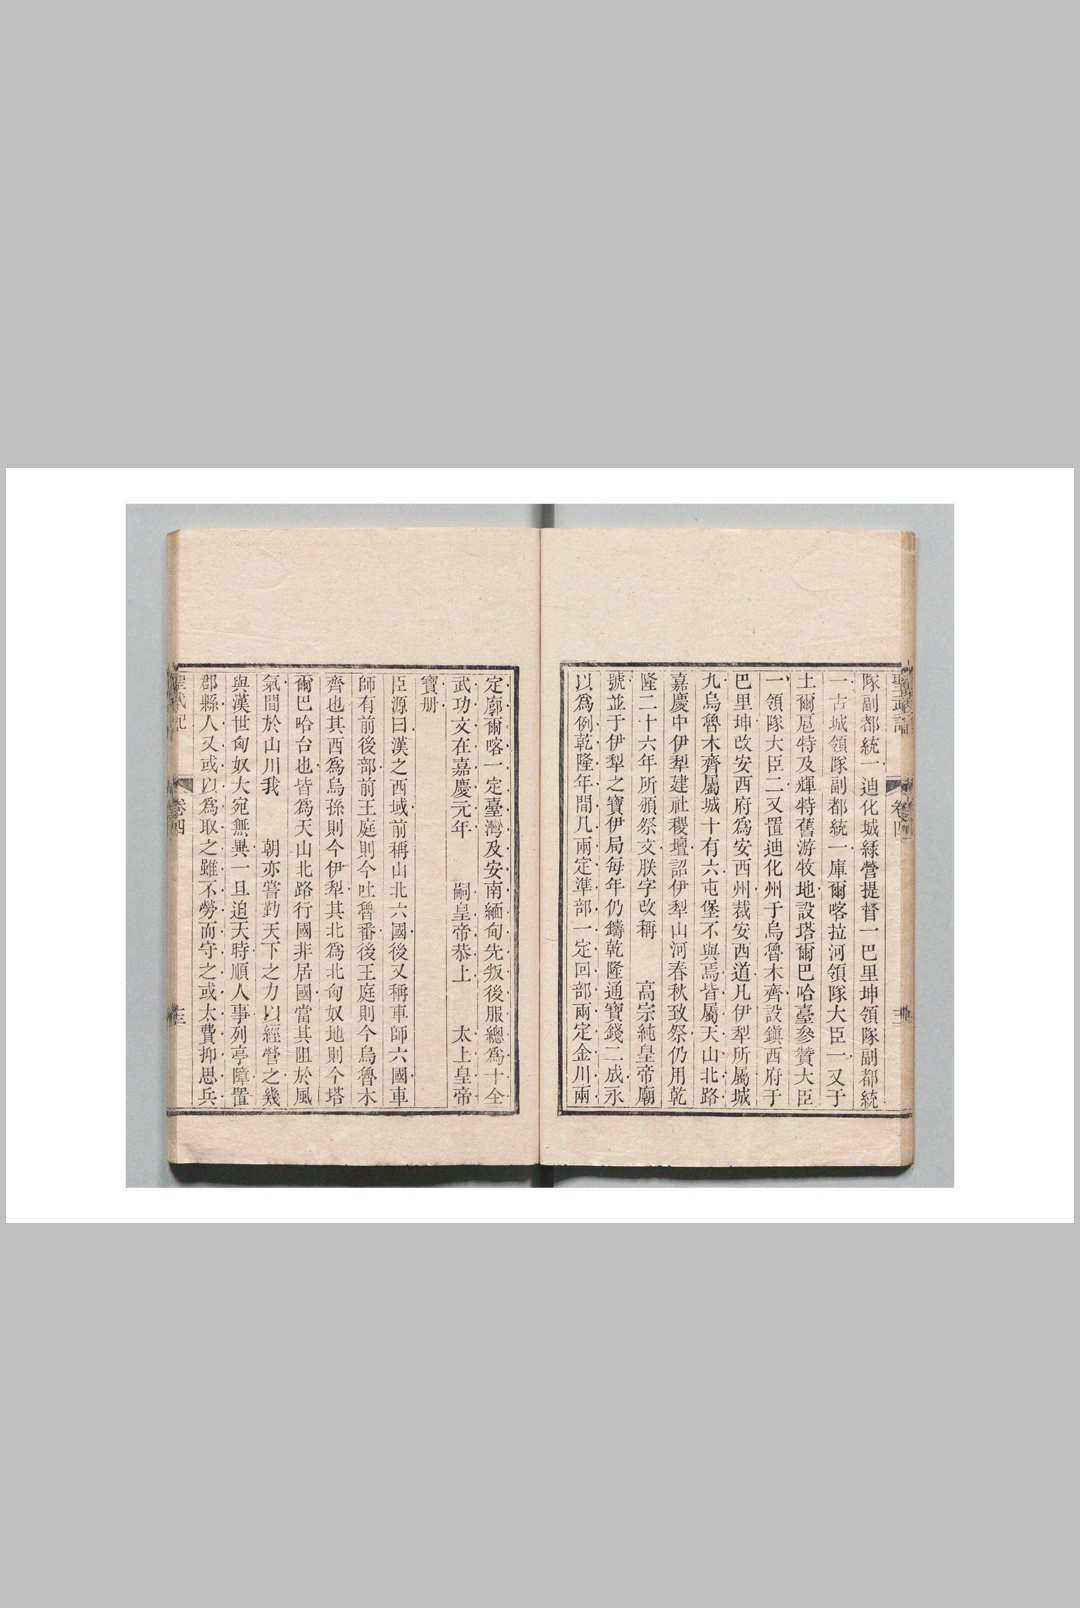 隊副都統一迪化城綠營提督一巴里坤領隊副都統
一古城領隊副都統一庫爾喀拉河領隊大臣一又于
土爾扈特及輝特舊游牧地設塔爾巴哈臺參贊大臣
一領隊大臣二又置迪化州于烏魯木齊設鎭西府于
巴里坤改安西府爲安西州裁安西道凡伊犁所屬城
九烏魯木齊屬城十有六屯堡不與焉皆屬天山北路
嘉慶中伊犁建社稷壇詔伊犁山河春秋致祭仍用乾
隆二十六年所頒祭文朕字改稱 高宗純皇帝廟
號並于伊犁之寶伊局每年仍鑄乾隆通寶錢二成永
以爲例乾隆年間凡兩定準部一定回部兩定金川兩
定廓爾喀一定臺灣及安南緬甸先叛後服總爲十全
武功文在嘉慶元年 嗣皇帝恭上 太上皇帝
寶册
臣源曰漢之西域前稱山北六國後又稱車師六國車
師有前後部前王庭則今吐魯番後王庭則今烏魯木
齊也其西爲烏孫則今伊犁其北爲北匈奴地則今塔
爾巴哈台也皆爲天山北路行國非居國當其阻於風
氣間於山川我 朝亦嘗勤天下之力以經營之幾
與漢世匈奴大宛無異一旦追天時順人事列亭障置
郡縣人又或以爲取之雖不勞而守之或太費抑思兵
聖武記
卷四